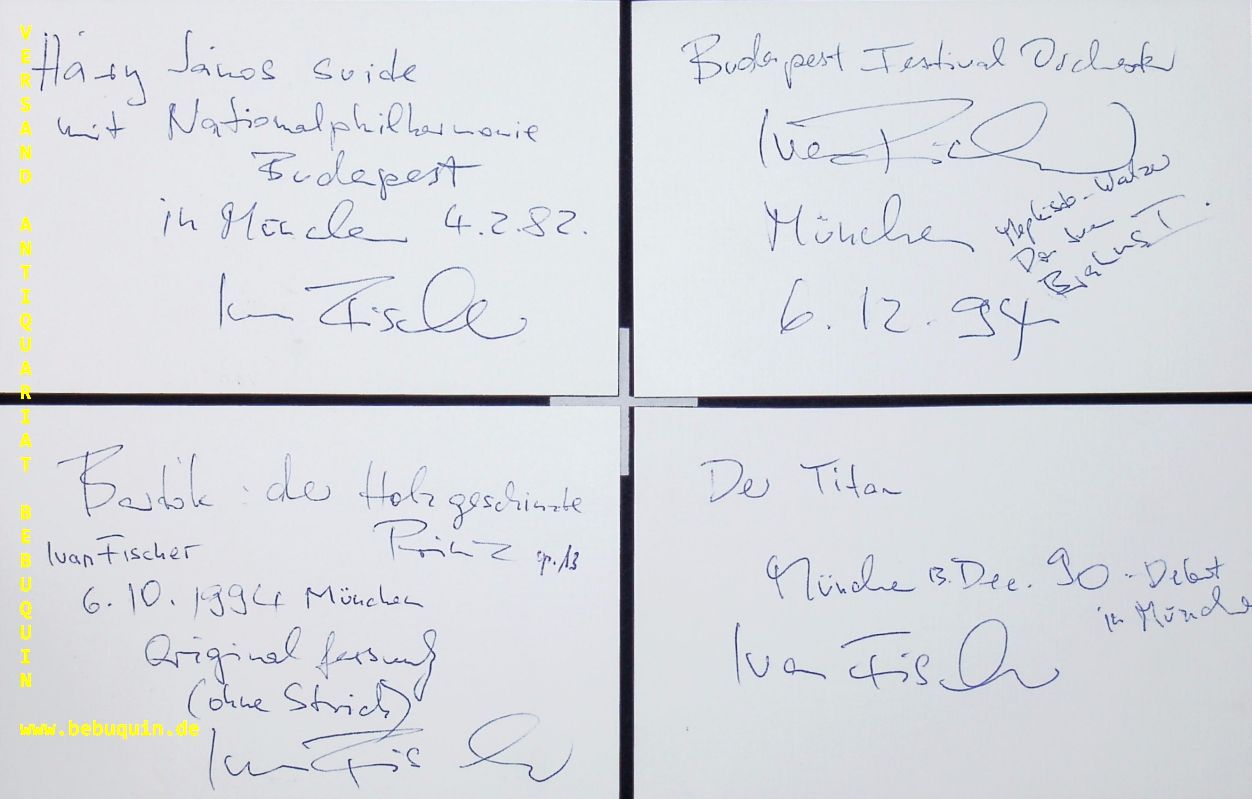 Háry János suide
mit Nationalphilharmonie
Budapest
in München 4.2.82.
Ivan Fischer
Budapest Festival Orchester
Ivan Fischer
München
6.12.94
Mephisto-Walzer
Don Juan
Brahms I.
Bartók: der Holzgeschnizte
Prinz op. 13
Ivan Fischer
6.10.1994 München
Originalfassung
(ohne Strich)
Ivan Fischer
Der Titan
München 13. Dec. 90 - Debut
in München
Ivan Fischer
VERSAND ANTIQUARIAT BEBUQUIN
www.bebuquin.de